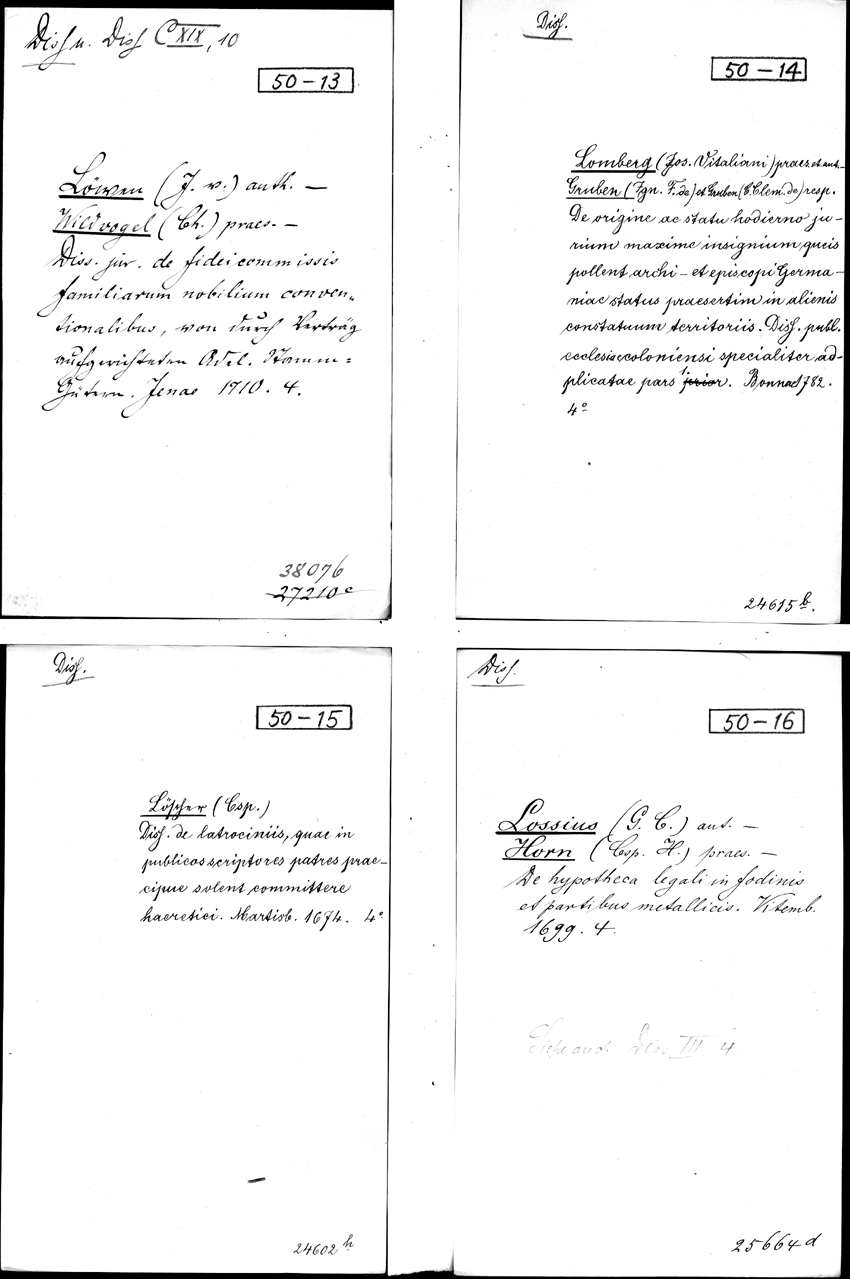 Diss u. Diss C XIX, 10
50-13
Löwen (J. v.) auth. —
Wildvogel (Ch.) praes. —
Diss. jur. de fideicommissis
familiarum nobilium conven-
tionalibus, von durch Verträg
aufgerichteten Adel. Stamm=
Gütern. Jenae 1710. 4.
38076
27210c
Diss.
50-14
Lomberg (Jos. Vitaliani) praes et aut.
Gruben (Ign. F. de) et Gruben (C. Clem. de) resp.
De origine ac statu hodierno ju-
rium maxime insignium, queis
pollent archi- et episcopi Germa-
niae status praesertim in alienis
constatuum territoriis. Diss. publ.
ecclesiae coloniensi specialiter ad-
plicatae pars 1 prior. Bonnae 1782.
4°
24615b.
Diss.
50-15
Löscher (Csp.)
Diss. de latrociniis, quae in
publicos scriptores patres prae-
cipue solent committere
haeretici. Martisb. 1674. 4°
24602h
Diss.
50-16
Lossius (G. C.) aut. —
Horn (Csp. H.) praes. —
De hypotheca legali in fodinis
et partibus metallicis. Vitemb.
1699. 4.
Siehe auch Diss III 4
25664d